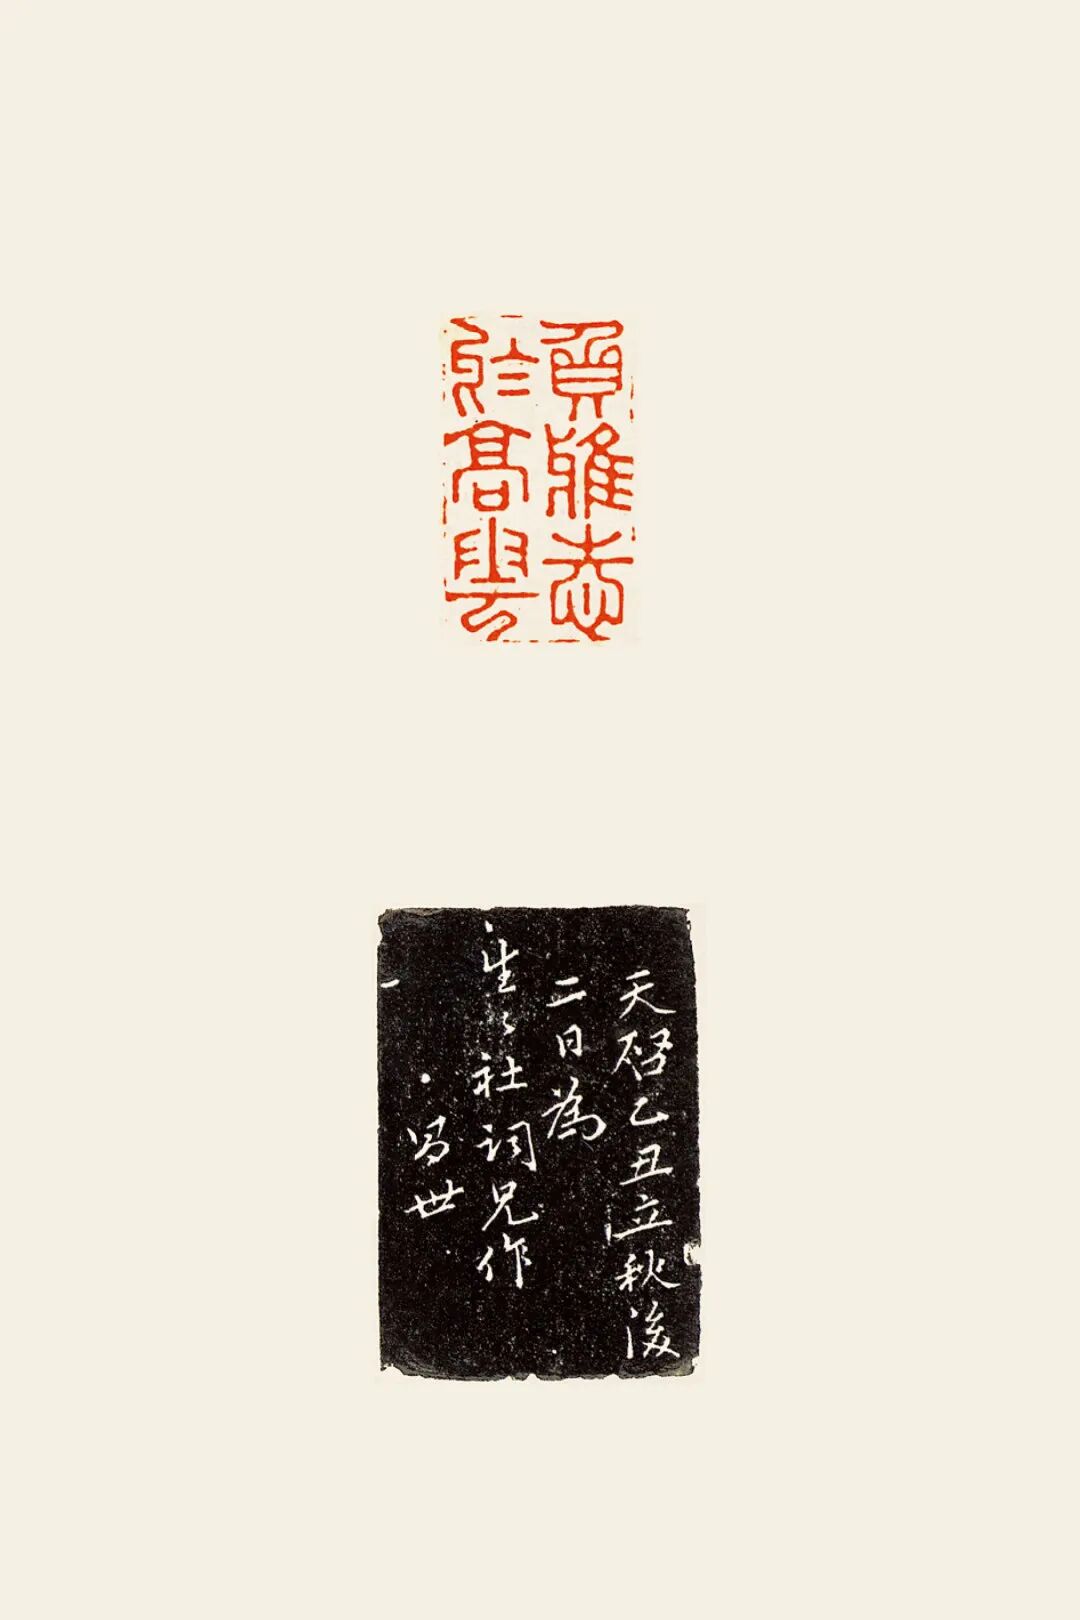 負雅志
於高雲
天啓乙丑立秋後
二日為
生〻社詞兄作
昌世